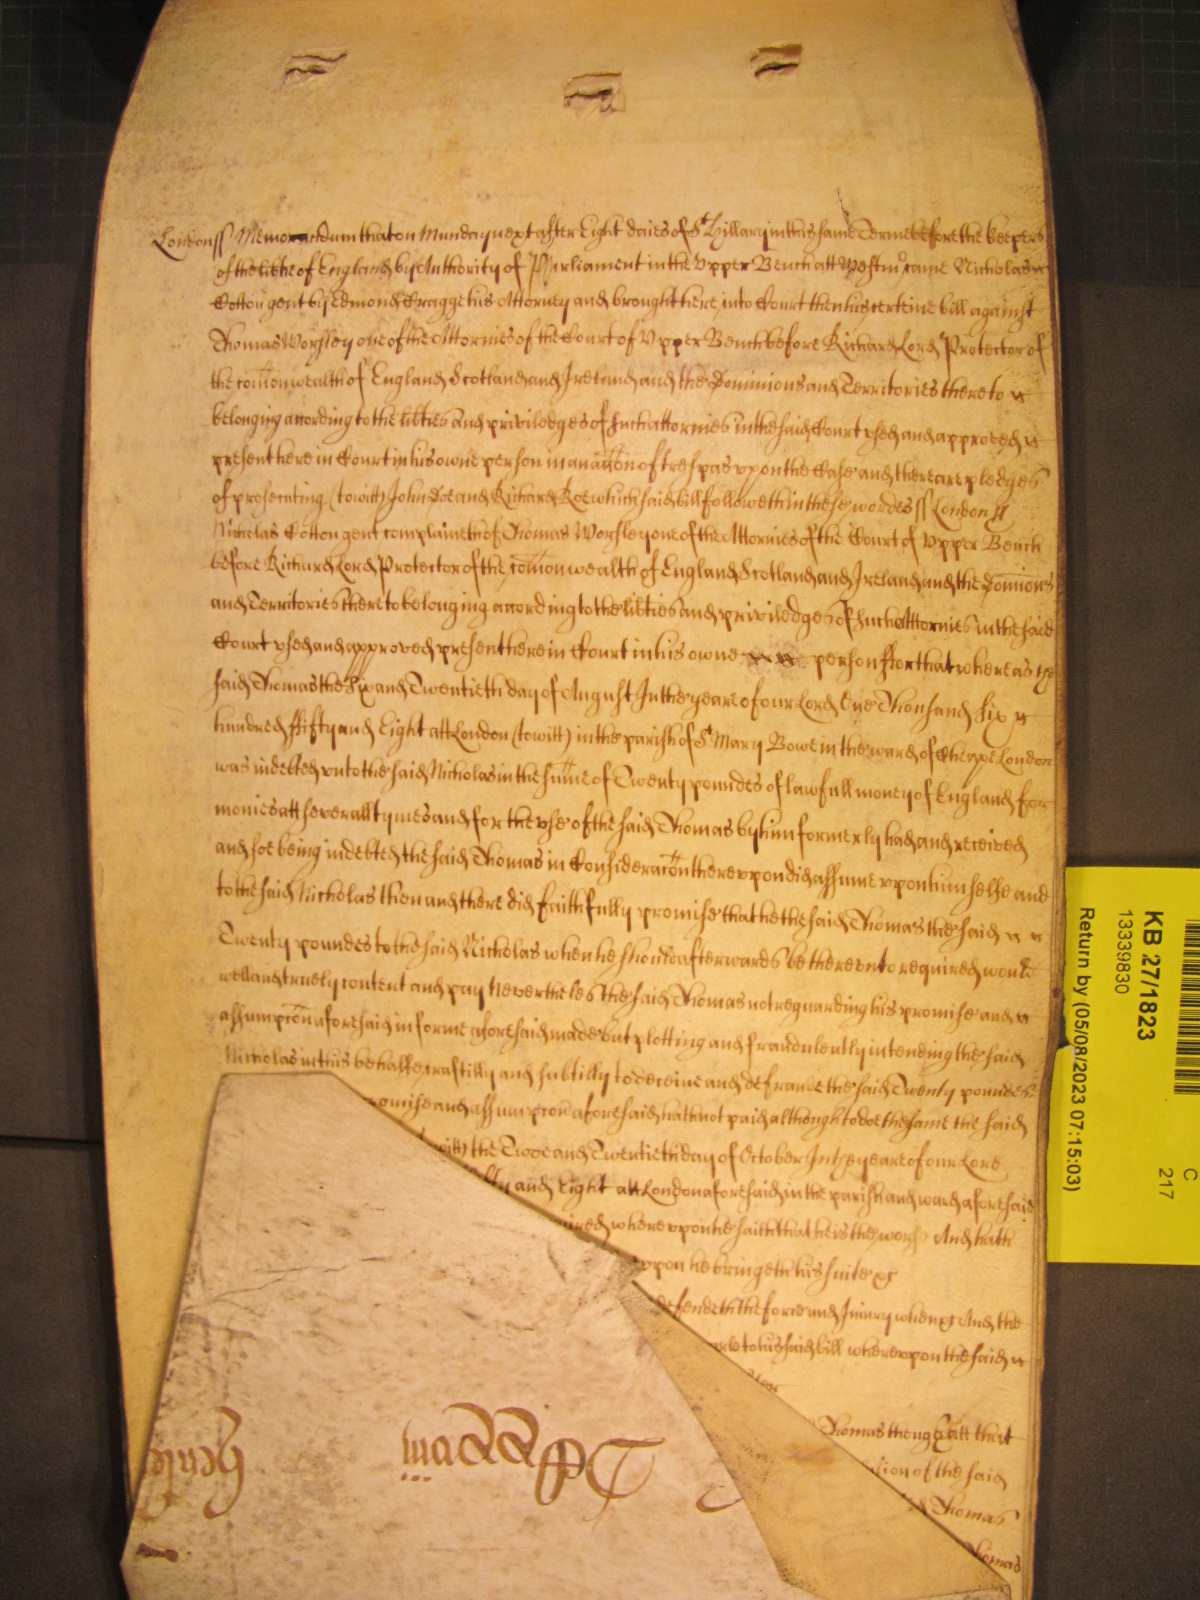 London ss Memorandum that on Munday next after Eight daies of St Hillary in this same Terme before the keepers
of the libtie of England by Authority of Parliament in the Upper Bench att Westmr came Nicholas
Cotton gent by Edmond Cragge his Attorney and brought here into Court then his certeine bill against
Thomas Worsley one of the Attornies of the Court of Upper Bench before Richard Lord Protector of
the comonwealth of England Scotland and Ireland and the Dominions and Territories thereto
belonging according to the libties and priviledges of such attornies in the said Court vsed and approved
present here in Court in his owne person in an accon of trespas vpon the Case and there are pledges
of prosecuting (towitt) John Doe and Richard Roe which said bill followeth in these wordes ss London ss
Nicholas Cotton gent complaineth of Thomas Worsley one of the Attornies of the Court of Upper Bench
before Richard Lord Protector of the comonwealth of England Scotland and Ireland and the Dominions
and Territories thereto belonging according to the libties and priviledges of such Attornies in the said
Court vsed and approved present here in Court in his owne person ffor that whereas the
said Thomas the Six and Twentieth day of August In the yeare of our Lord One Thousand Six
hundred ffifty and Eight att London (towitt) in the parish of St Mary Bowe in the ward of Cheape London
was indebted vnto the said Nicholas in the sume of Twenty poundes of lawfull money of England for
monies att severall tymes and for the vse of the said Thomas by him formerly had and received
and soe being indebted the said Thomas in Consideracon therevpon did assume vpon himselfe and
to the said Nicholas then and there did faithfully promise that he the said Thomas the said
Twenty poundes to the said Nicholas when he should afterwards be therevnto required would
well and truely content and pay Neverthelesse the said Thomas not reguarding his promise and
assumpcon aforesaid in forme aforesaid made but plotting and fraudulently intending the said
Nicholas in this behalfe craftilly and subtilly to deceive and defraude the said Twenty poundes
promise and assumpcon aforesaid hath not paid although to doe the same the said
the Twoe and Twentieth day of October In the yeare of our Lord
and Eight att London aforesaid in the parish and ward aforesaid
wherevpon he saith that he is the worse And hath
vpon he bringeth his suite &c
defendeth the force and Iniury when &c And the
to his said bill wherevpon the said
Thomas though att that
of the said
Thomas
Thomas
KB 27/1823
13339830
Return by (05/08/2023 07:15:03)
C
217